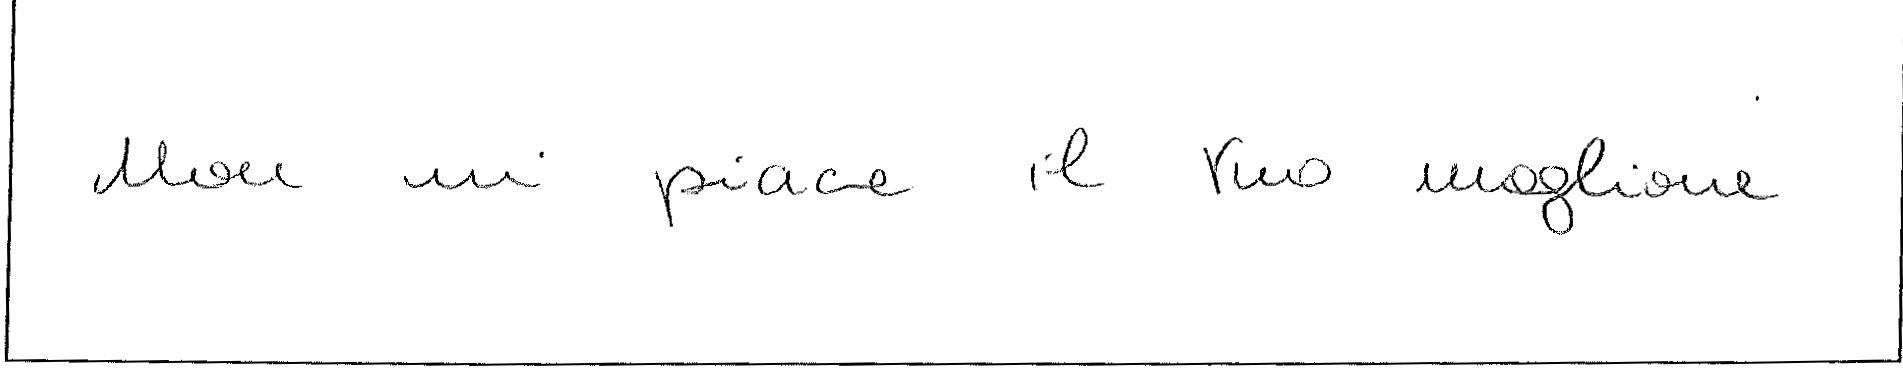 Non mi piace il tuo maglione